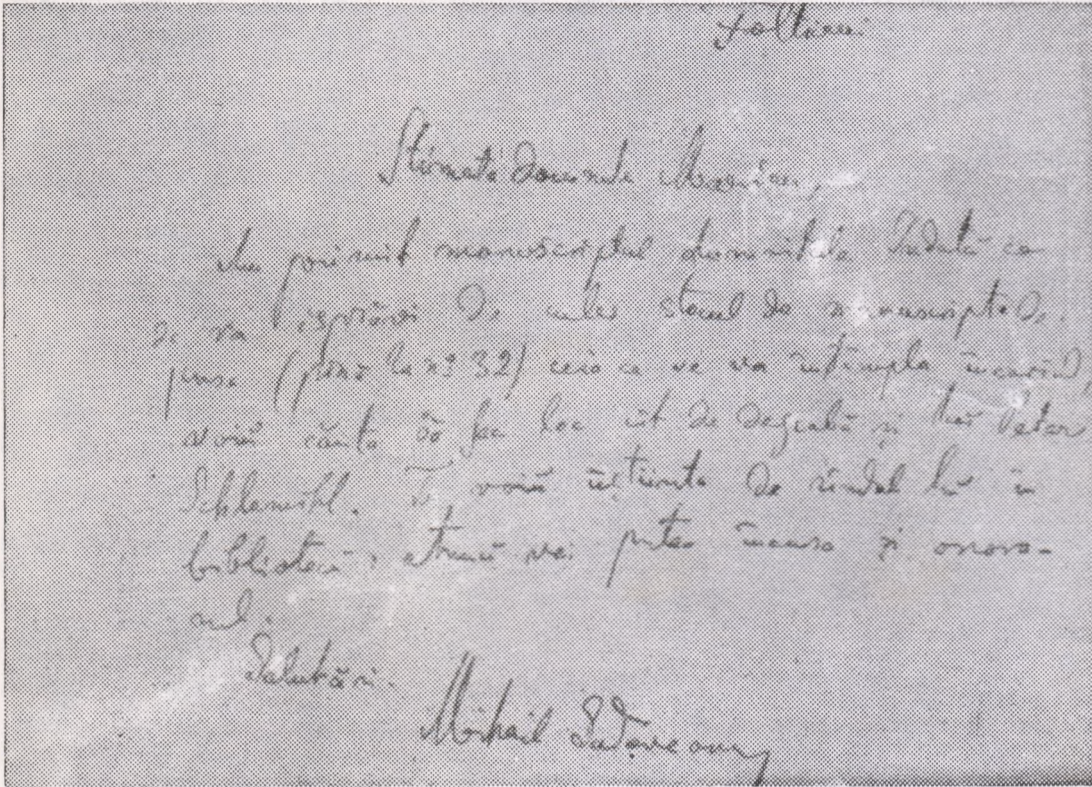 Folticeni
Stimate Domnule Marian,
Am primit manuscriptul dumnitale. Îndată ce
se va isprăvi de cules stocul de manuscripte de
puse (pănă la nº 32) ceia ce se va întîmpla în curînd
voiŭ căuta să fac loc cît de degrabă și lui Peter
Schlemihl. Te voiŭ înștiința de rîndul lui în
bibliotecă; atunci vei putea încasa și onora-
riul.
Salutări.
Mihail Sadoveanu